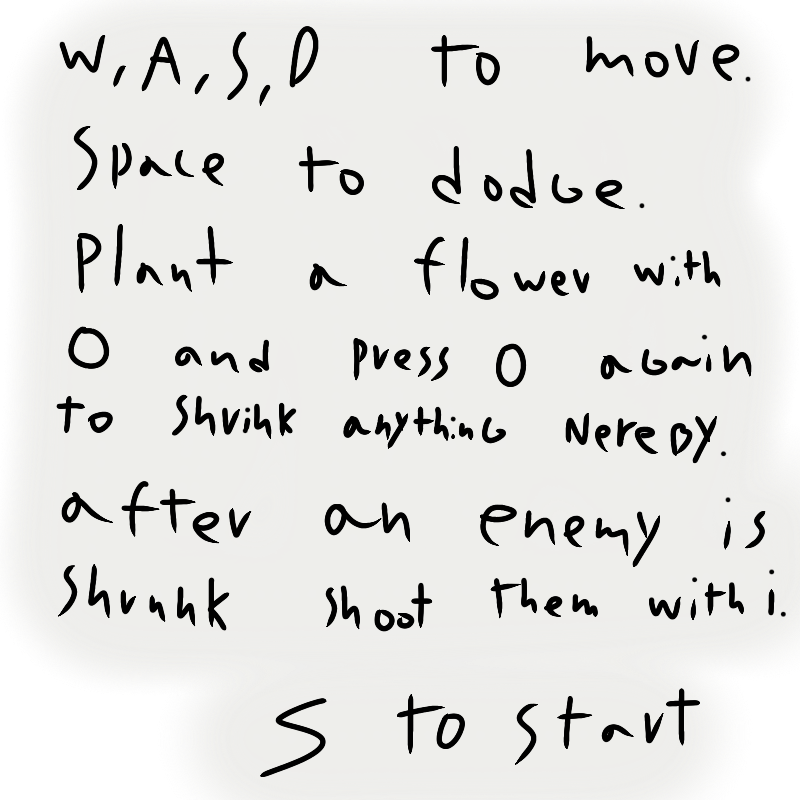 W, A, S, D to move.
Space to dodge.
Plant a flower with
O and press O again
to shrink anything nereby.
after an enemy is
shrunk shoot them with i.
S to start